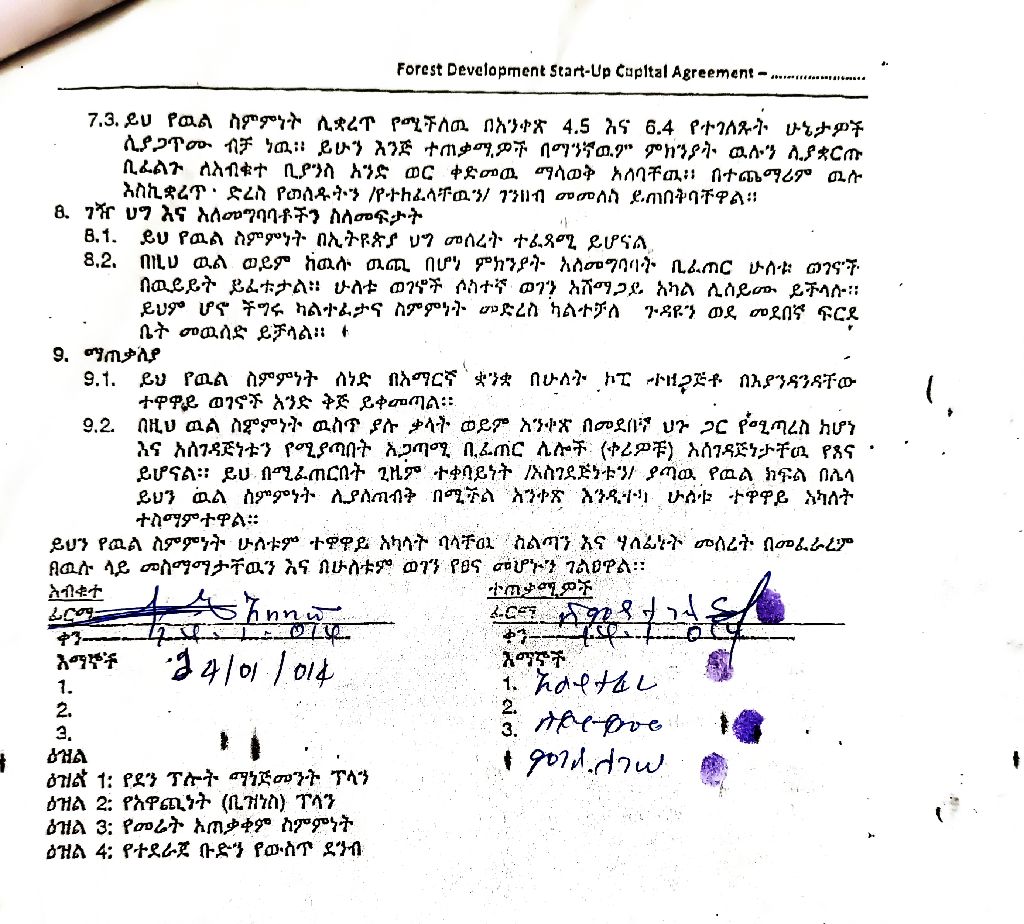 Forest Development Start-Up Capital Agreement – ........................
7.3. ይህ የዉል ስምምነት ሊቋረጥ የሚችለዉ በአንቀጽ 4.5 እና 6.4 የተገለጹት ሁኔታዎች
ሲያጋጥሙ ብቻ ነዉ፡፡ ይሁን እንጅ ተጠቃሚዎች በማንኛዉም ምክንያት ዉሉን ሊያቋርጡ
ቢፈልጉ ለአብቁተ ቢያንስ አንድ ወር ቀድመዉ ማሳወቅ አለባቸዉ፡፡ በተጨማሪም ዉሉ
እስኪቋረጥ ድረስ የወሰዱትን /የተከፈላቸዉን/ ገንዘብ መመለስ ይጠበቅባቸዋል፡፡
8. ገዥ ህግ እና አለመግባባቶችን ስለመፍታት
8.1. ይህ የዉል ስምምነት በኢትዩጵያ ህግ መሰረት ተፈጻሚ ይሆናል
8.2. በዚህ ዉል ወይም ከዉሉ ዉጪ በሆነ ምክንያት አለመግባባት ቢፈጠር ሁለቱ ወገኖች
በዉይይት ይፈቱታል፡፡ ሁለቱ ወገኖች ሶስተኛ ወገን አሸማጋይ አካል ሊሰይሙ ይችላሉ፡፡
ይህም ሆኖ ችግሩ ካልተፈታና ስምምነት መድረስ ካልተቻለ ጉዳዩን ወደ መደበኛ ፍርደ
ቤት መዉሰድ ይቻላል፡፡
9. ማጠቃለያ
9.1. ይህ የዉል ስምምነት ሰነድ በአማርኛ ቋንቋ በሁለት ኮፒ ተዘጋጅቶ በእያንዳንዳቸው
ተዋዋይ ወገኖች አንድ ቅጅ ይቀመጣል፡፡
9.2. በዚህ ዉል ስምምነት ዉስጥ ያሉ ቃላት ወይም አንቀጽ በመደበኛ ህጉ ጋር የሚጣረስ ከሆነ
እና አስገዳጅነቱን የሚያጣበት አጋጣሚ ቢፈጠር ሌሎች (ቀሪዎቹ) አስገዳጅነታቸዉ የጸና
ይሆናል፡፡ ይህ በሚፈጠርበት ጊዜም ተቀባይነት /አስገደጅነቱን/ ያጣዉ የዉል ክፍል በሌላ
ይህን ዉል ስምምነት ሊያስጠብቅ በሚችል አንቀጽ እንዲተካ ሁለቱ ተዋዋይ አካለት
ተስማምተዋል፡፡
ይህን የዉል ስምምነት ሁለቱም ተዋዋይ አካላት ባላቸዉ ስልጣን እና ሃላፊነት መሰረት በመፈራረም
በዉሉ ላይ መስማማታቸዉን እና በሁለቱም ወገን የፀና መሆኑን ገልፀዋል፡፡
አብቁተ
ፊርማ
ቀን
እማኞች
24/01/014
1.
2.
3.
ተጠቃሚዎች
ፊርማ
ቀን
እማኞች
1.
2.
3.
ዕዝል
ዕዝል 1: የደን ፕሎት ማነጅመንት ፕላን
ዕዝል 2: የአዋጪነት (ቢዝነስ) ፕላን
ዕዝል 3: የመሬት አጠቃቀም ስምምነት
ዕዝል 4: የተደራጀ ቡድን የውስጥ ደንብ